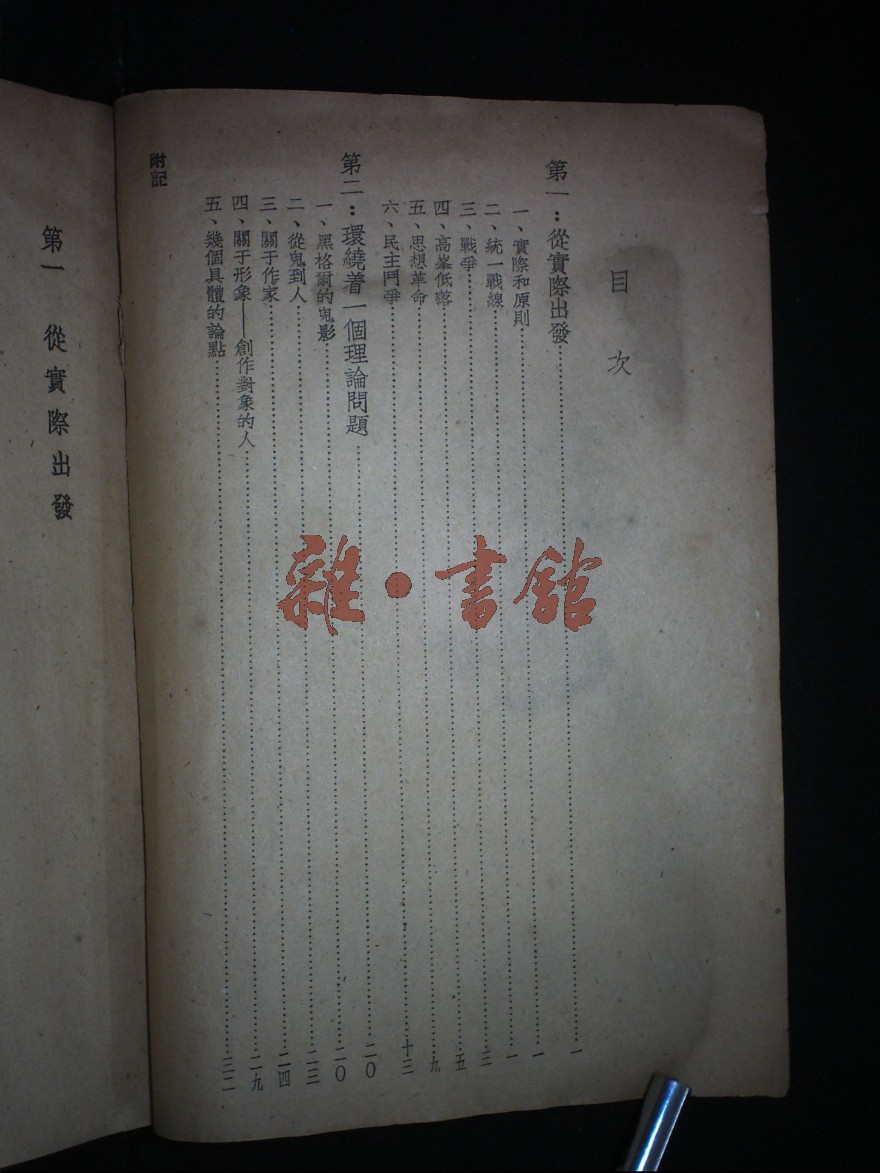 目次
第一：從實際出發……一
一、實際和原則……一
二、統一戰線……一
三、戰爭……三
四、高峯低落……五
五、思想革命……九
六、民主鬥爭……十三
第二：環繞着一個理論問題……二〇
一、黑格爾的鬼影……二〇
二、從鬼到人……二三
三、關于作家……二四
四、關于形象——創作對象的人……二九
五、幾個具體的論點……三二
附記
第一 從實際出發
雜·書館